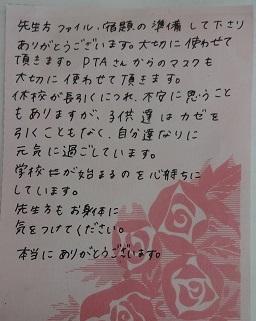 先生方 ファイル、宿題の準備して下さり
ありがとうございます。大切に使わせて
頂きます。PTAさんからのマスクも
大切に使わせて頂きます。
休校が長引くにつれ、不安に思うこと
もありますが、子供達はカゼを
引くこともなく、自分達なりに
元気に過ごしています。
学校が始まるのを心待ちに
しています。
先生方もお身体に
気をつけてください。
本当にありがとうございます。